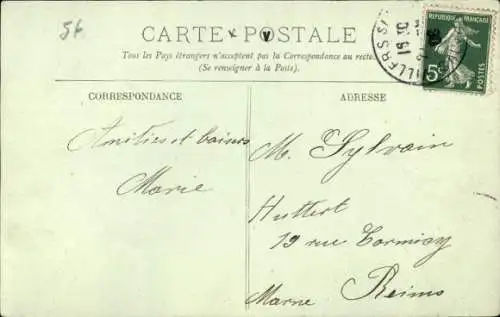 56
CARTE POSTALE
Tous les Pays étrangers n'acceptent pas la Correspondance au recto
(Se renseigner à la Poste).
CORRESPONDANCE
ADRESSE
Amitiés et baisers
Marie
M. Sylvain
Huttert
19 rue Cormicy
Reims
Marne
5c
POSTES